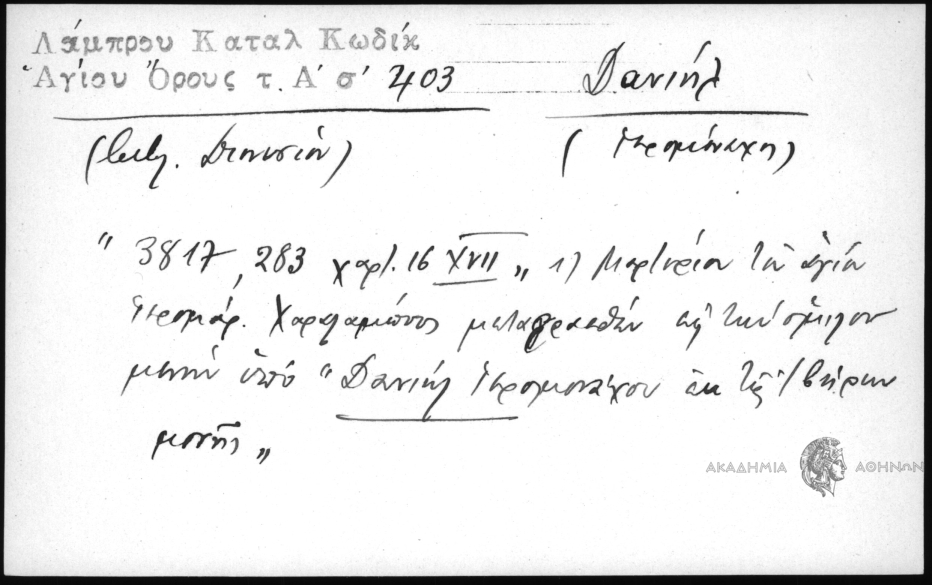 Λάμπρου Καταλ Κωδίκ
Ἁγίου Ὄρους τ. Α' σ' 403
Δανιήλ
(βιβλ. Διονυσίου)
(Ἱερομόναχος)
" 3817, 283 χαρτ. 16 XVII " 1) Μαρτύριον τοῦ ἁγίου
Ἱερομάρ. Χαραλάμπους μεταφρασθὲν εἰς τὴν
ὑπὸ "Δανιὴλ Ἱερομονάχου ἐκ τῆς Ἰβήρων
μονῆς "
ΑΚΑΔΗΜΙΑ ΑΘΗΝΩΝ